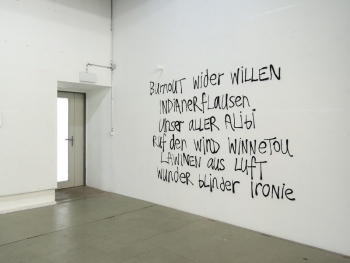 BURNOUT wider WILLEN
INDIANERFLAUSEN
UNSER ALLER ALIBI
RUF den WIND WINNETOU
LAWINEN AUS LUFT
WUNDER blinder IRONIE